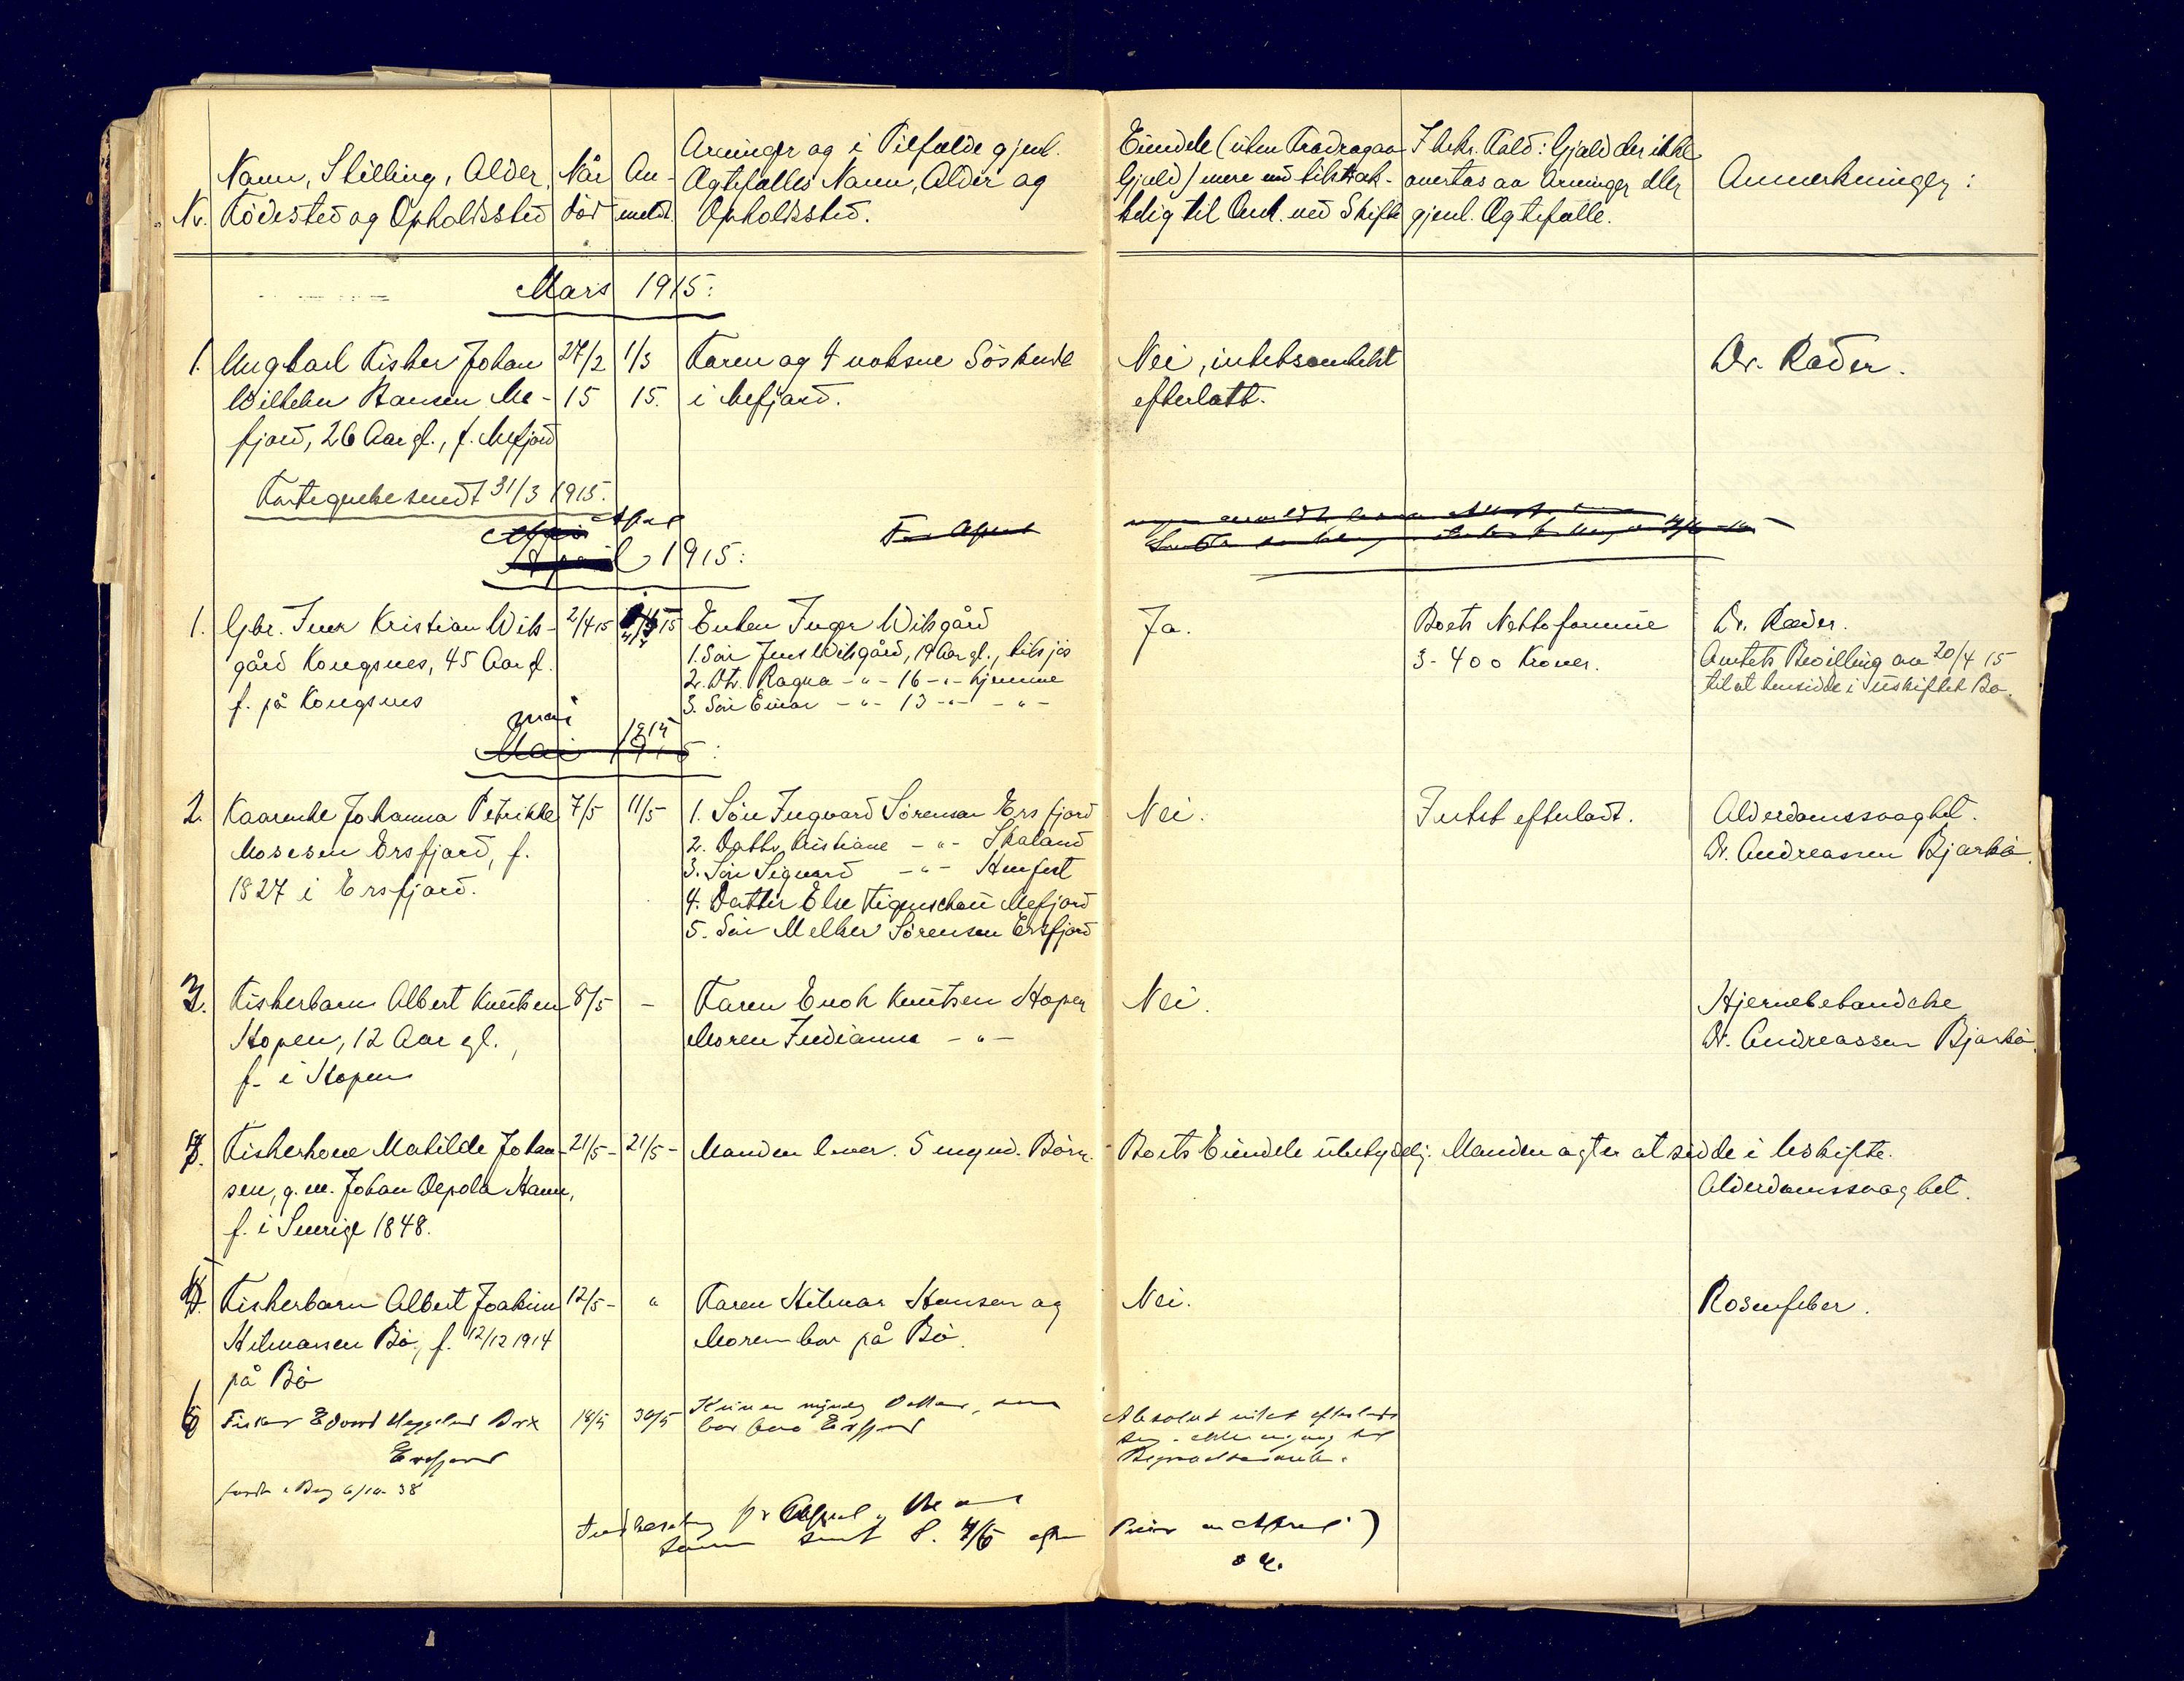 Nr.
Navn, Stilling, Alder,
Födested og Opholdssted
Når
död
An-
meldt.
Arvinger og i Tilfælde gjenl.
Ægtefælles Navn, Alder og
Opholdssted.
Eiendele (uten Fradrag av
Gjæld) mere end tilstræk-
kelig til Omk. ved Skifte
I bekr. Fald: Gjæld der ikke
overtas av Arvinger eller
gjenl. Ægtefælle.
Anmerkninger:
Mars 1915:
1. Ungkarl Fisker Johan
Wilhelm Hansen Me-
fjord, 26 Aar gl., f. Mefjord
27/2
15
1/3
15.
Faren og 4 voksne Söskende
i Mefjord.
Nei, intetsomhelst
efterlatt.
Dr. Ræder.
Fortegnelse sendt 31/3 1915.
April
1915:
1. Gbr. Jens Kristian Wils-
gård Kongsnes, 45 Aar gl.
f. på Kongsnes
2/4 15
15
Enken Inger Wilsgård
1. Sön Jens Wilsgård, 19 Aar gl., tilsjös
2. Dtr. Ragna -"- 16 -"- hjemme
3. Sön Einar -"- 13 -"- -"-
Ja.
Boets Nettoformue
3-400 Kroner.
Dr. Ræder.
Amtets Bevilling av 20/4 15
til at hensidde i uskiftet Bo.
mai 1915
Mai 1915:
2. Kaarenle Johanna Petrikke
Mosesen Ersfjord, f.
1827 i Ersfjord.
7/5
11/5
1. Sön Ingvard Sörensen Ersfjord
2. Datter Kristiane -"- Skaland
3. Sön Sigvard -"- Hmfest
4. Datter Else Figenschou Mefjord
5. Sön Melker Sörensen Ersfjord
Nei.
Intet efterladt.
Alderdomssvaghet.
Dr. Andreassen Bjarkö.
3. Fiskerbarn Albert Knutsen
Hopen, 12 Aar gl.,
f. i Hopen
8/5
-
Faren Enok Knutsen Hopen
Moren Indianna -"-
Nei.
Hjernebetændelse
Dr. Andreassen Bjarkö.
4. Fiskerkone Matilde Johan-
sen, g. m. Johan Oepola Hamn,
f. i Sverige 1848.
21/5-
21/5-
Manden lever. 5 mynd. Börn.
Boets Eiendele ubetydelig. Manden agter at sidde i Uskifte.
Alderdomssvaghet.
5. Fiskerbarn Albert Joakim
Hilmarsen Bö, f. 12/12 1914
på Bö
12/5-
"
Faren Hilmar Hansen og
Moren bor på Bö.
Nei.
Rosenfeber.
6 Fisker Edvard Heggelund Brox
Ersfjord
född i Berg 6/10-38
18/5
30/5
Kun en myndig Datter, som
bor paa Ersfjord
Absolut intet efterladt
sig - ikke engang til
April
sendt S. 4/6
April)